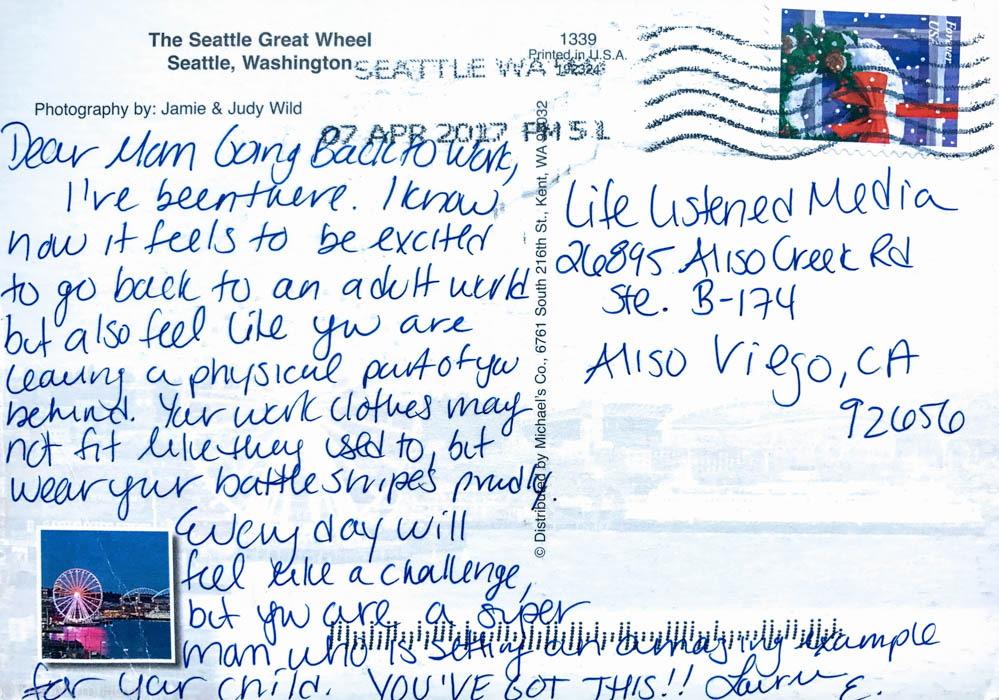 The Seattle Great Wheel
Seattle, Washington
Photography by: Jamie & Judy Wild
1339
Printed in U.S.A.
SEATTLE WA
07 APR 2017 PM 5 L
Forever
USA
Dear Mom Going Back to Work,
I've been there. I know
how it feels to be excited
to go back to an adult world
but also feel like you are
leaving a physical part of you
behind. Your work clothes may
not fit like they used to, but
wear your battle stripes proudly.
Every day will
feel like a challenge,
but you are a super
mom who is setting an amazing example
for your child. YOU'VE GOT THIS!! Lauren E.
© Distributed by Michael's Co., 6761 South 216th St., Kent, WA 98032
Life Listened Media
26895 Aliso Creek Rd
Ste. B-174
Aliso Viejo, CA
92656